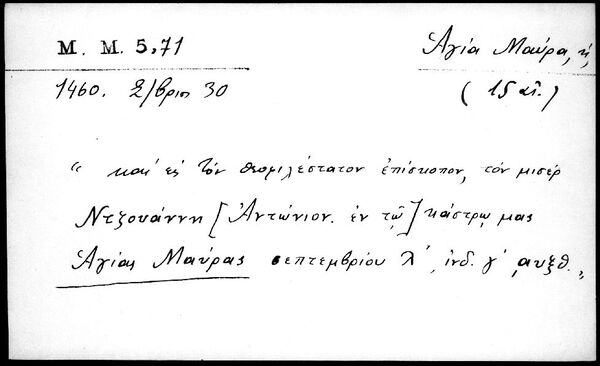 Μ. Μ. 5,71
Ἁγία Μαύρα, ἡ,
1460. Σ/βριου 30
(15 αἰ.)
“ καί εἰς τόν θεοφιλέστατον ἐπίσκοπον, τόν μισέρ
Ντζουάννη [Ἀντώνιον. ἐν τῷ] κάστρῳ μας
Ἁγίας Μαύρας σεπτεμβρίου λ´, ἰνδ. γ´ ͵αυξθ. „